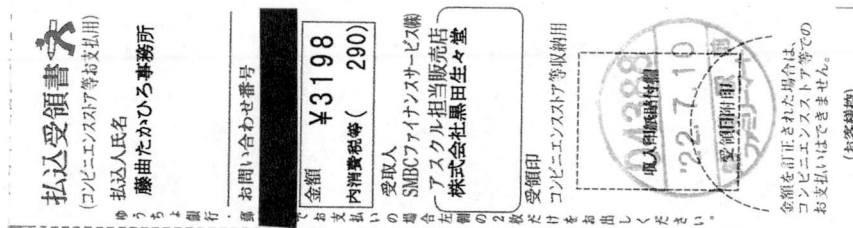 払込受領書
(コンビニエンスストア等お支払用)
払込人氏名
藤曲たかひろ事務所
お問い合わせ番号
金額
¥3198
内消費税等( 290)
受取人
SMBCファイナンスサービス㈱
アスクル担当販売店
株式会社黒田生々堂
受領印
コンビニエンスストア等収納用
収入印紙貼付欄
04388
'22.7.10
受領日附印
ファミリーマート
金額を訂正された場合は、
コンビニエンスストア等での
お支払いはできません。
(お客様控)
ゆうちょ銀行・郵 でお支払いの場合左側の2枚だけをお出しください。